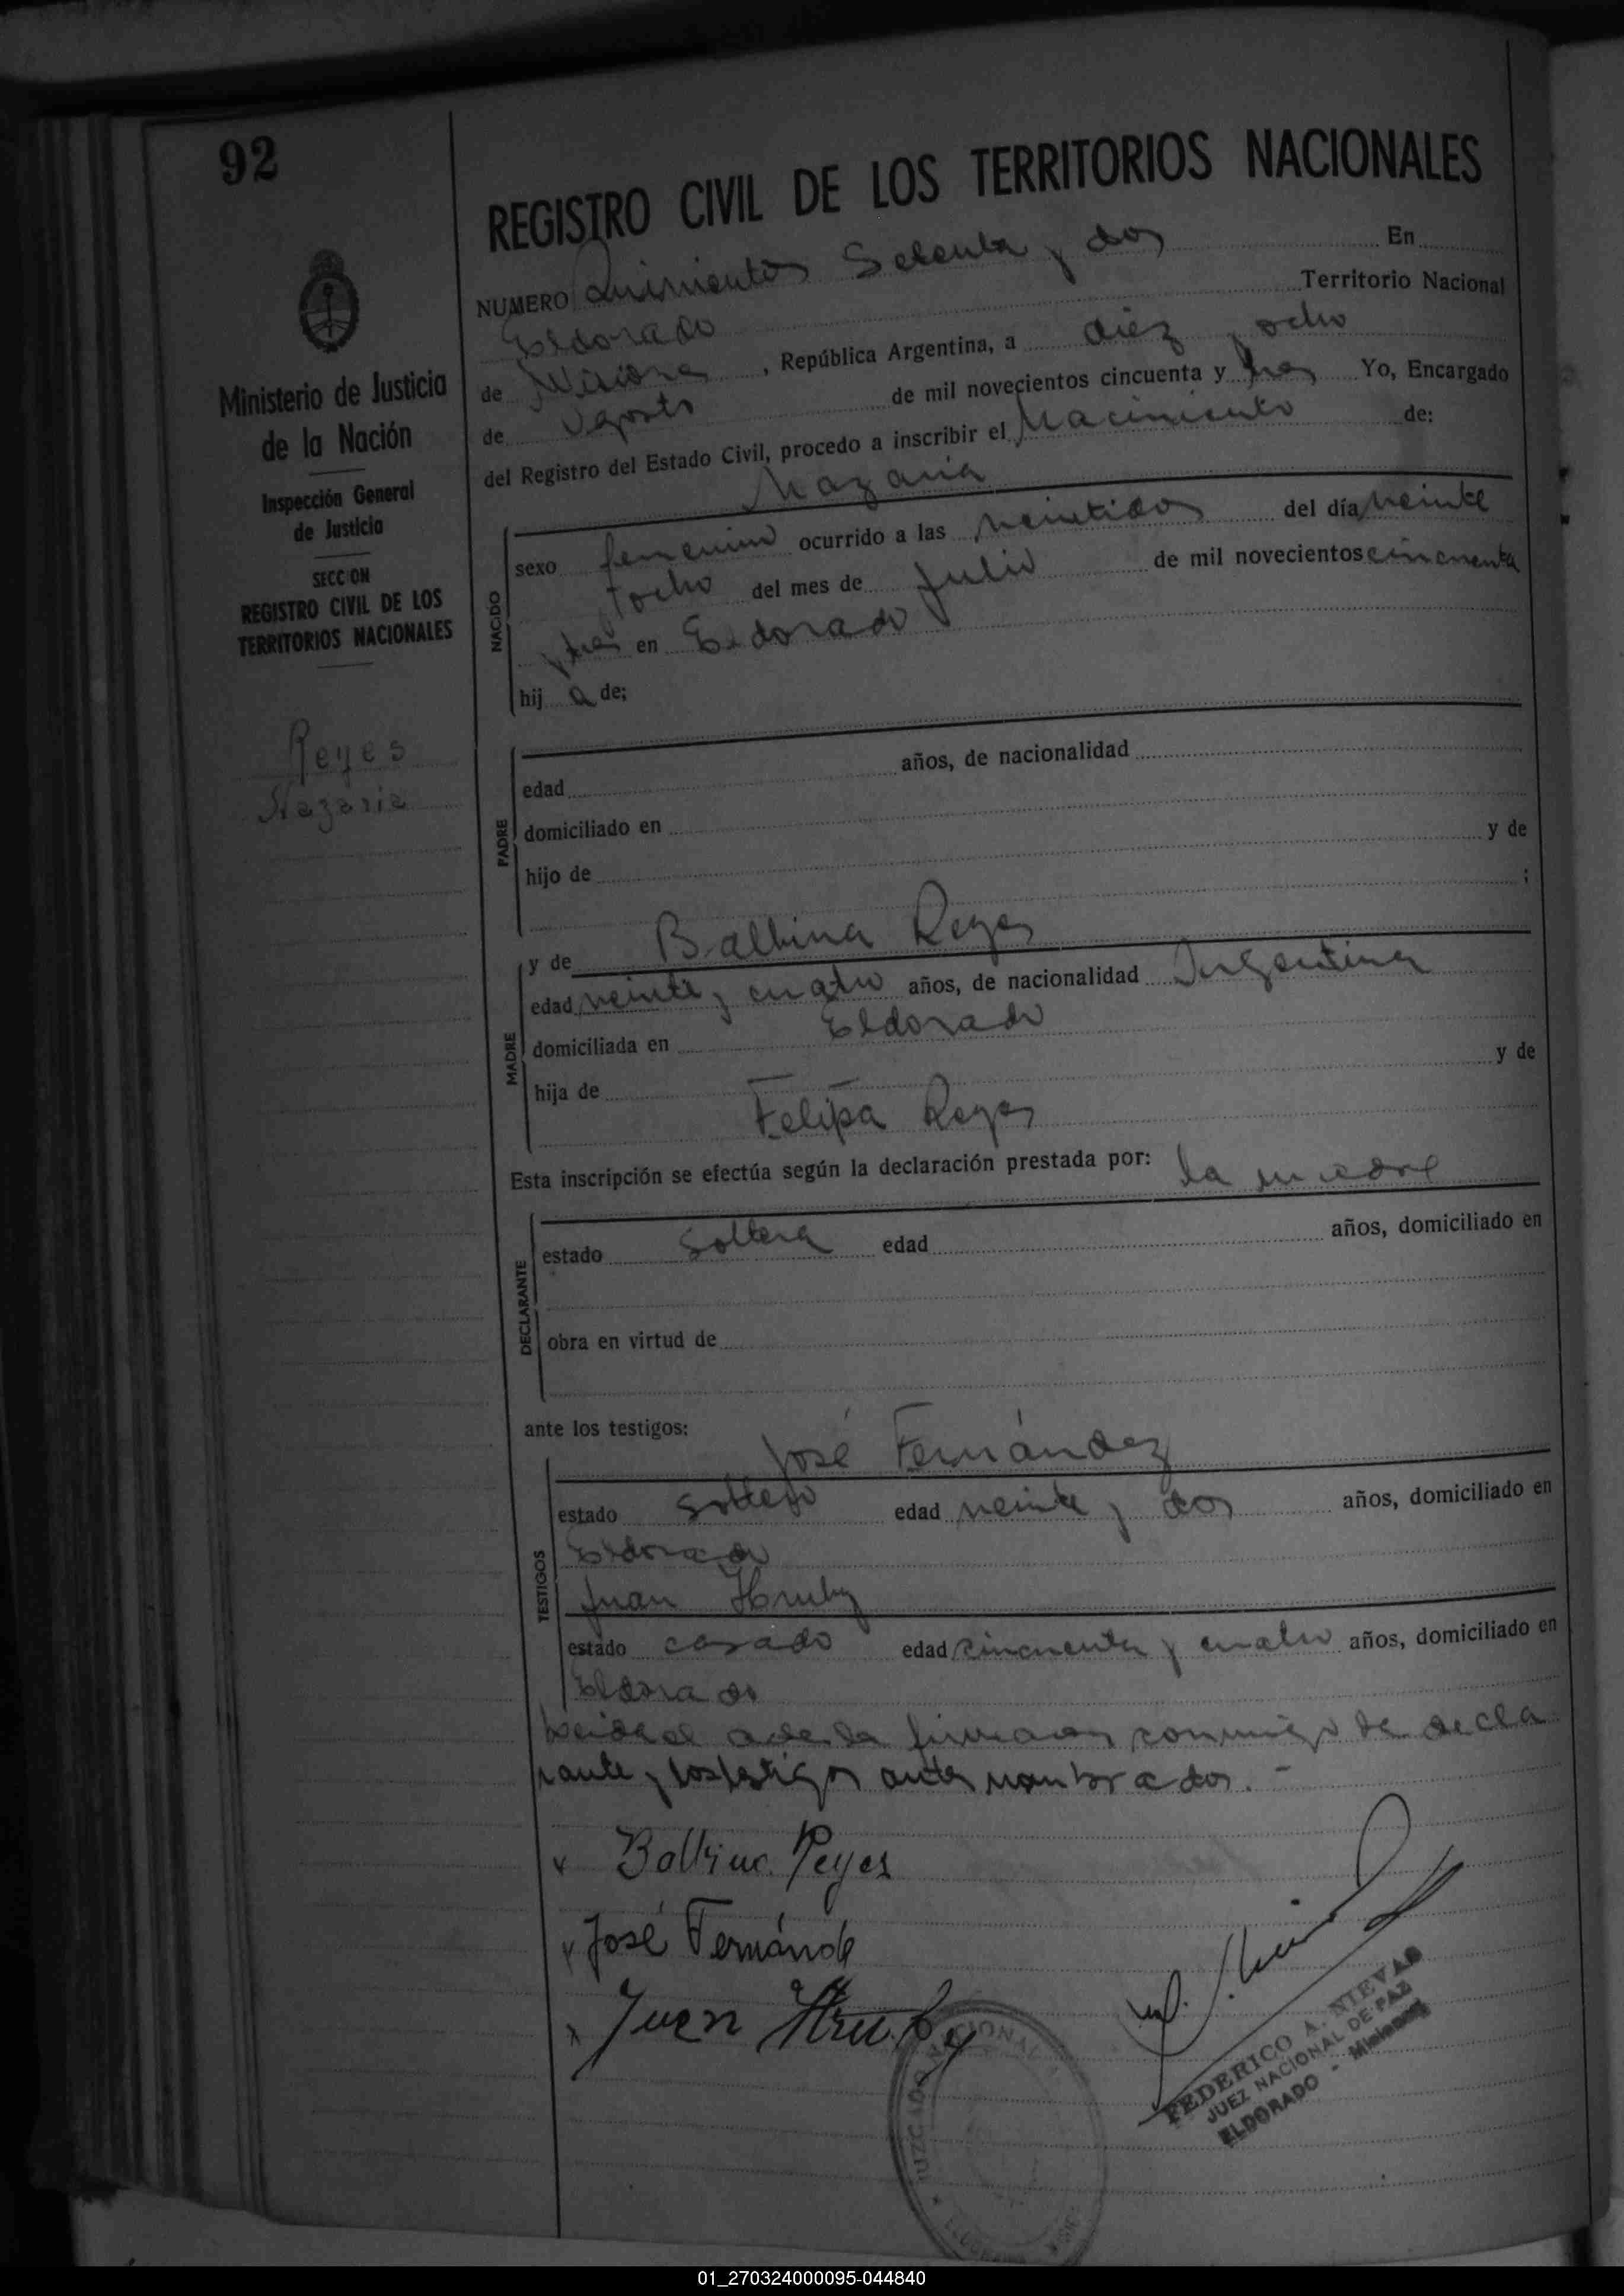 92
REGISTRO CIVIL DE LOS TERRITORIOS NACIONALES
NUMERO Quinientos Setenta y dos En
Eldorado Territorio Nacional
de Misiones, República Argentina, a diez y ocho
de Agosto de mil novecientos cincuenta y tres Yo, Encargado
del Registro del Estado Civil, procedo a inscribir el Nacimiento de:
Nazaria
Ministerio de Justicia
de la Nación
Inspección General
de Justicia
SECCION
REGISTRO CIVIL DE LOS
TERRITORIOS NACIONALES
Reyes
Nazaria
NACIDO
sexo femenino ocurrido a las veintidos del día veinte
y ocho del mes de Julio de mil novecientos cincuenta
y tres en Eldorado
hij a de;
PADRE
edad años, de nacionalidad
domiciliado en
hijo de y de
;
MADRE
y de Balbina Reyes
edad veinte y cuatro años, de nacionalidad Argentina
domiciliada en Eldorado
hija de — — y de
Felipa Reyes
Esta inscripción se efectúa según la declaración prestada por: la madre
DECLARANTE
estado soltera edad años, domiciliado en
obra en virtud de
ante los testigos:
José Fernández
TESTIGOS
estado soltero edad veinte y dos años, domiciliado en
Eldorado
Juan Hruby
estado casado edad cincuenta y cuatro años, domiciliado en
Eldorado
Leida el acta la firman conmigo la decla
rante y los testigos antes nombrados. -
x Balbina Reyes
x José Fernánde
x Juan Hruby
JUZGADO NACIONAL
FEDERICO A. NIEVAS
JUEZ NACIONAL DE PAZ
ELDORADO - Misiones
01_270324000095-044840